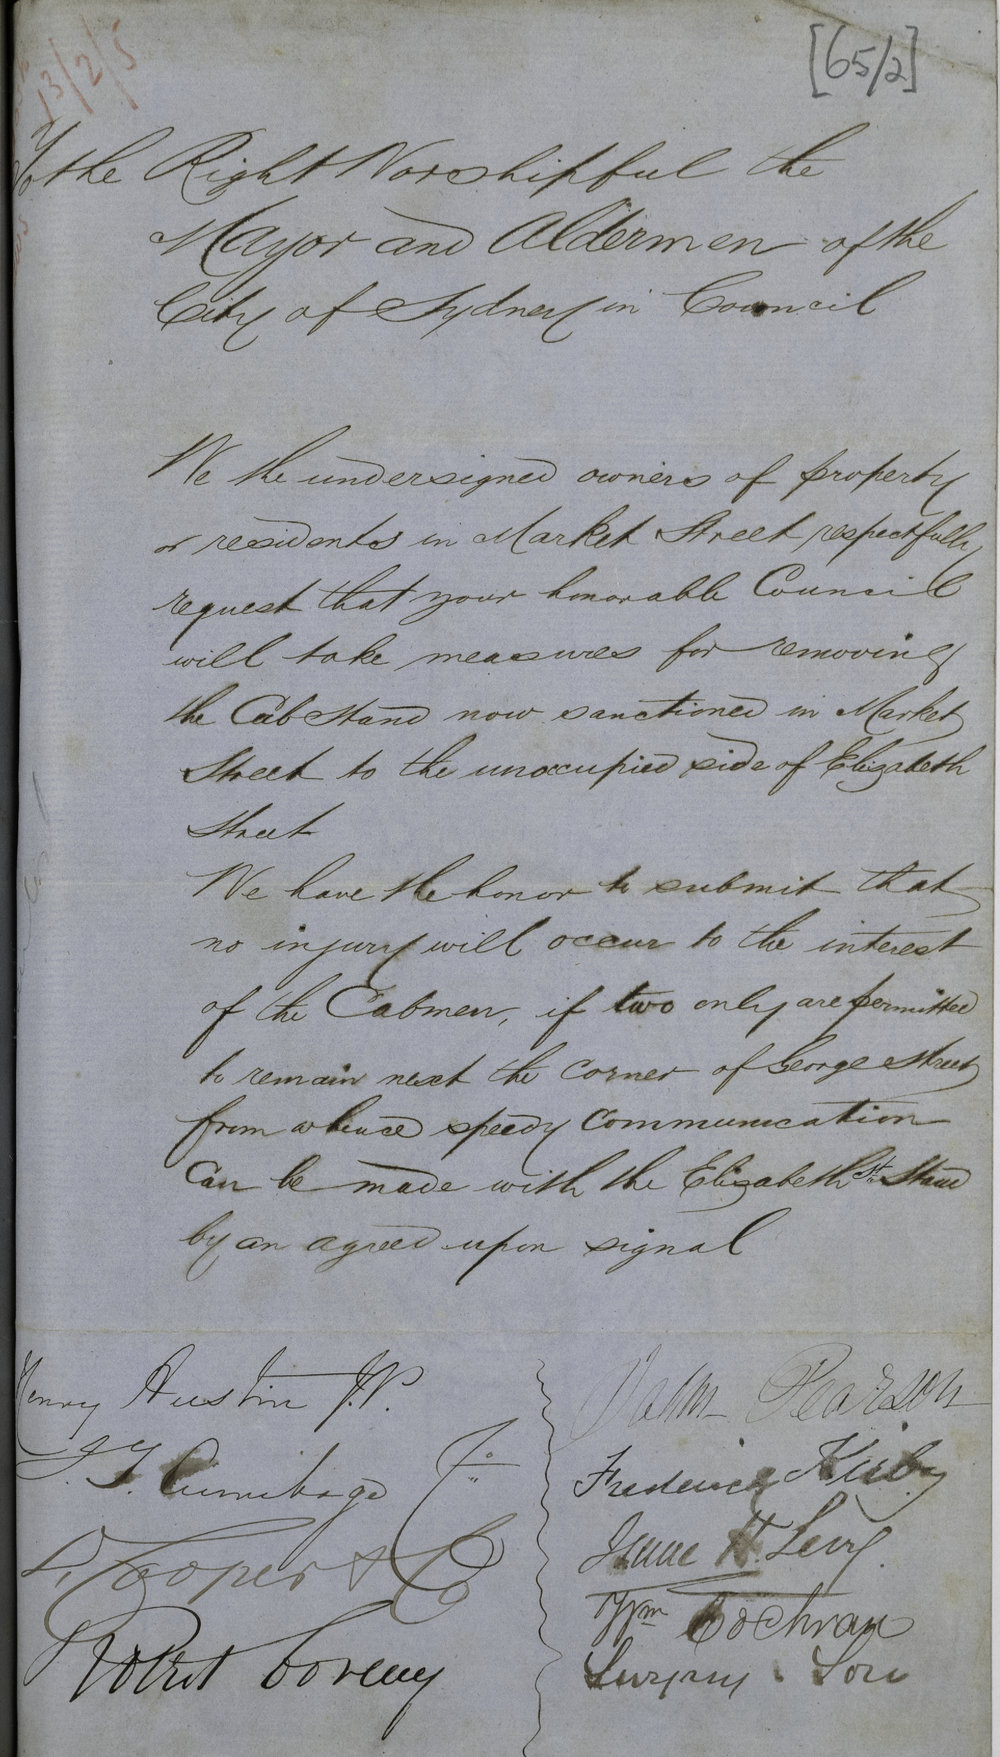 [65/2]
13/2/5
To the Right Worshipful the
Mayor and Aldermen of the
City of Sydney in Council
We the undersigned owners of property
or residents in Market Street respectfully
request that your honorable Council
will take measures for removing
the Cab Stand now sanctioned in Market
Street to the unoccupied side of Elizabeth
Street
We have the honor to submit that
no injury will occur to the interest
of the Cabmen, if two only are permitted
to remain next the corner of George Street
from whence speedy communication
can be made with the Elizabeth St. Stand
by an agreed upon signal
Henry Austin J.P.
Pearson
Frederick Kirby
Isaac H. Levy
D. Cooper & Co
Wm Cochran
Robert Coveny
Son